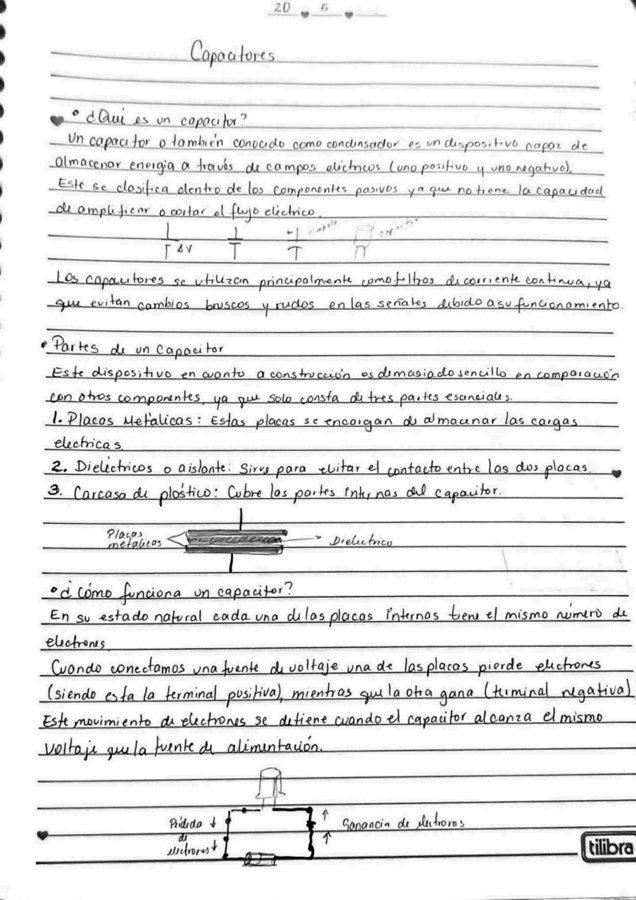 20 5
Capacitores
¿Qué es un capacitor?
Un capacitor o también conocido como condensador es un dispositivo capaz de
almacenar energía a través de campos eléctricos (uno positivo y uno negativo).
Este se clasifica dentro de los componentes pasivos ya que no tiene la capacidad
de amplificar o cortar el flujo eléctrico.
ΔV
Los capacitores se utilizan principalmente como filtros de corriente continua, ya
que evitan cambios bruscos y ruidos en las señales debido a su funcionamiento.
• Partes de un Capacitor
Este dispositivo en cuanto a construcción es demasiado sencillo en comparación
con otros componentes, ya que solo consta de tres partes esenciales.
1. Placas Metálicas: Estas placas se encargan de almacenar las cargas
electricas.
2. Dieléctricos o aislante: Sirve para evitar el contacto entre las dos placas.
3. Carcasa de plástico: Cubre las partes internas del capacitor.
Placas
metalicas
Dielectrico
• ¿cómo funciona un capacitor?
En su estado natural cada una de las placas internas tiene el mismo número de
electrones.
Cuando conectamos una fuente de voltaje una de las placas pierde electrones
(siendo esta la terminal positiva), mientras que la otra gana (terminal negativa)
Este movimiento de electrones se detiene cuando el capacitor alcanza el mismo
voltaje que la fuente de alimentación.
Pérdida
de
electrones
Ganancia de electrones
tilibra